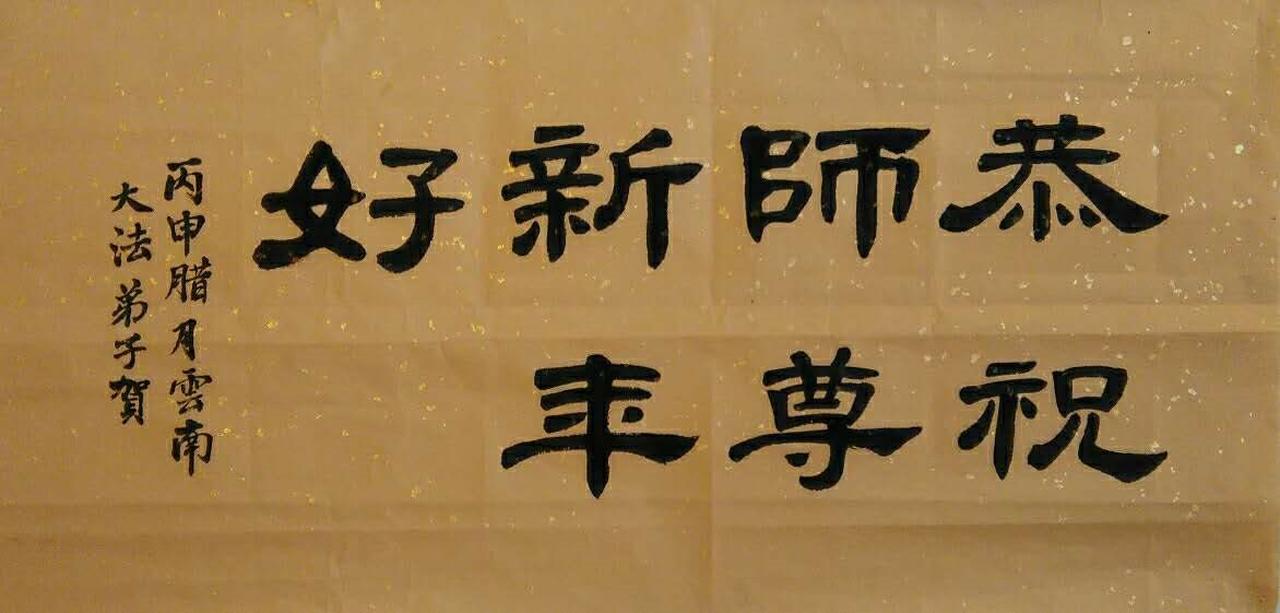 恭祝
師尊
新年
好
丙申腊月雲南
大法弟子賀